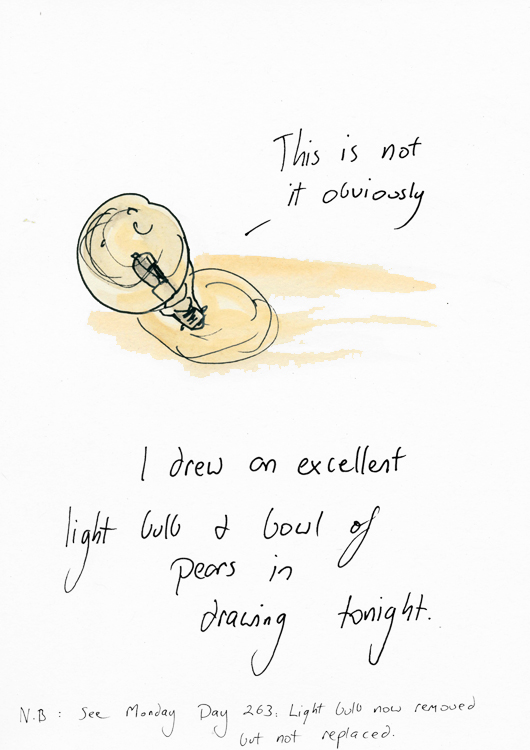 This is not
it obviously
I drew an excellent
light bulb & bowl of
pears in
drawing tonight.
N.B : See Monday Day 263: Light bulb now removed
but not replaced.